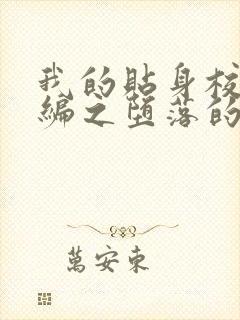 我的贴身校
编之堕落的
萬安東